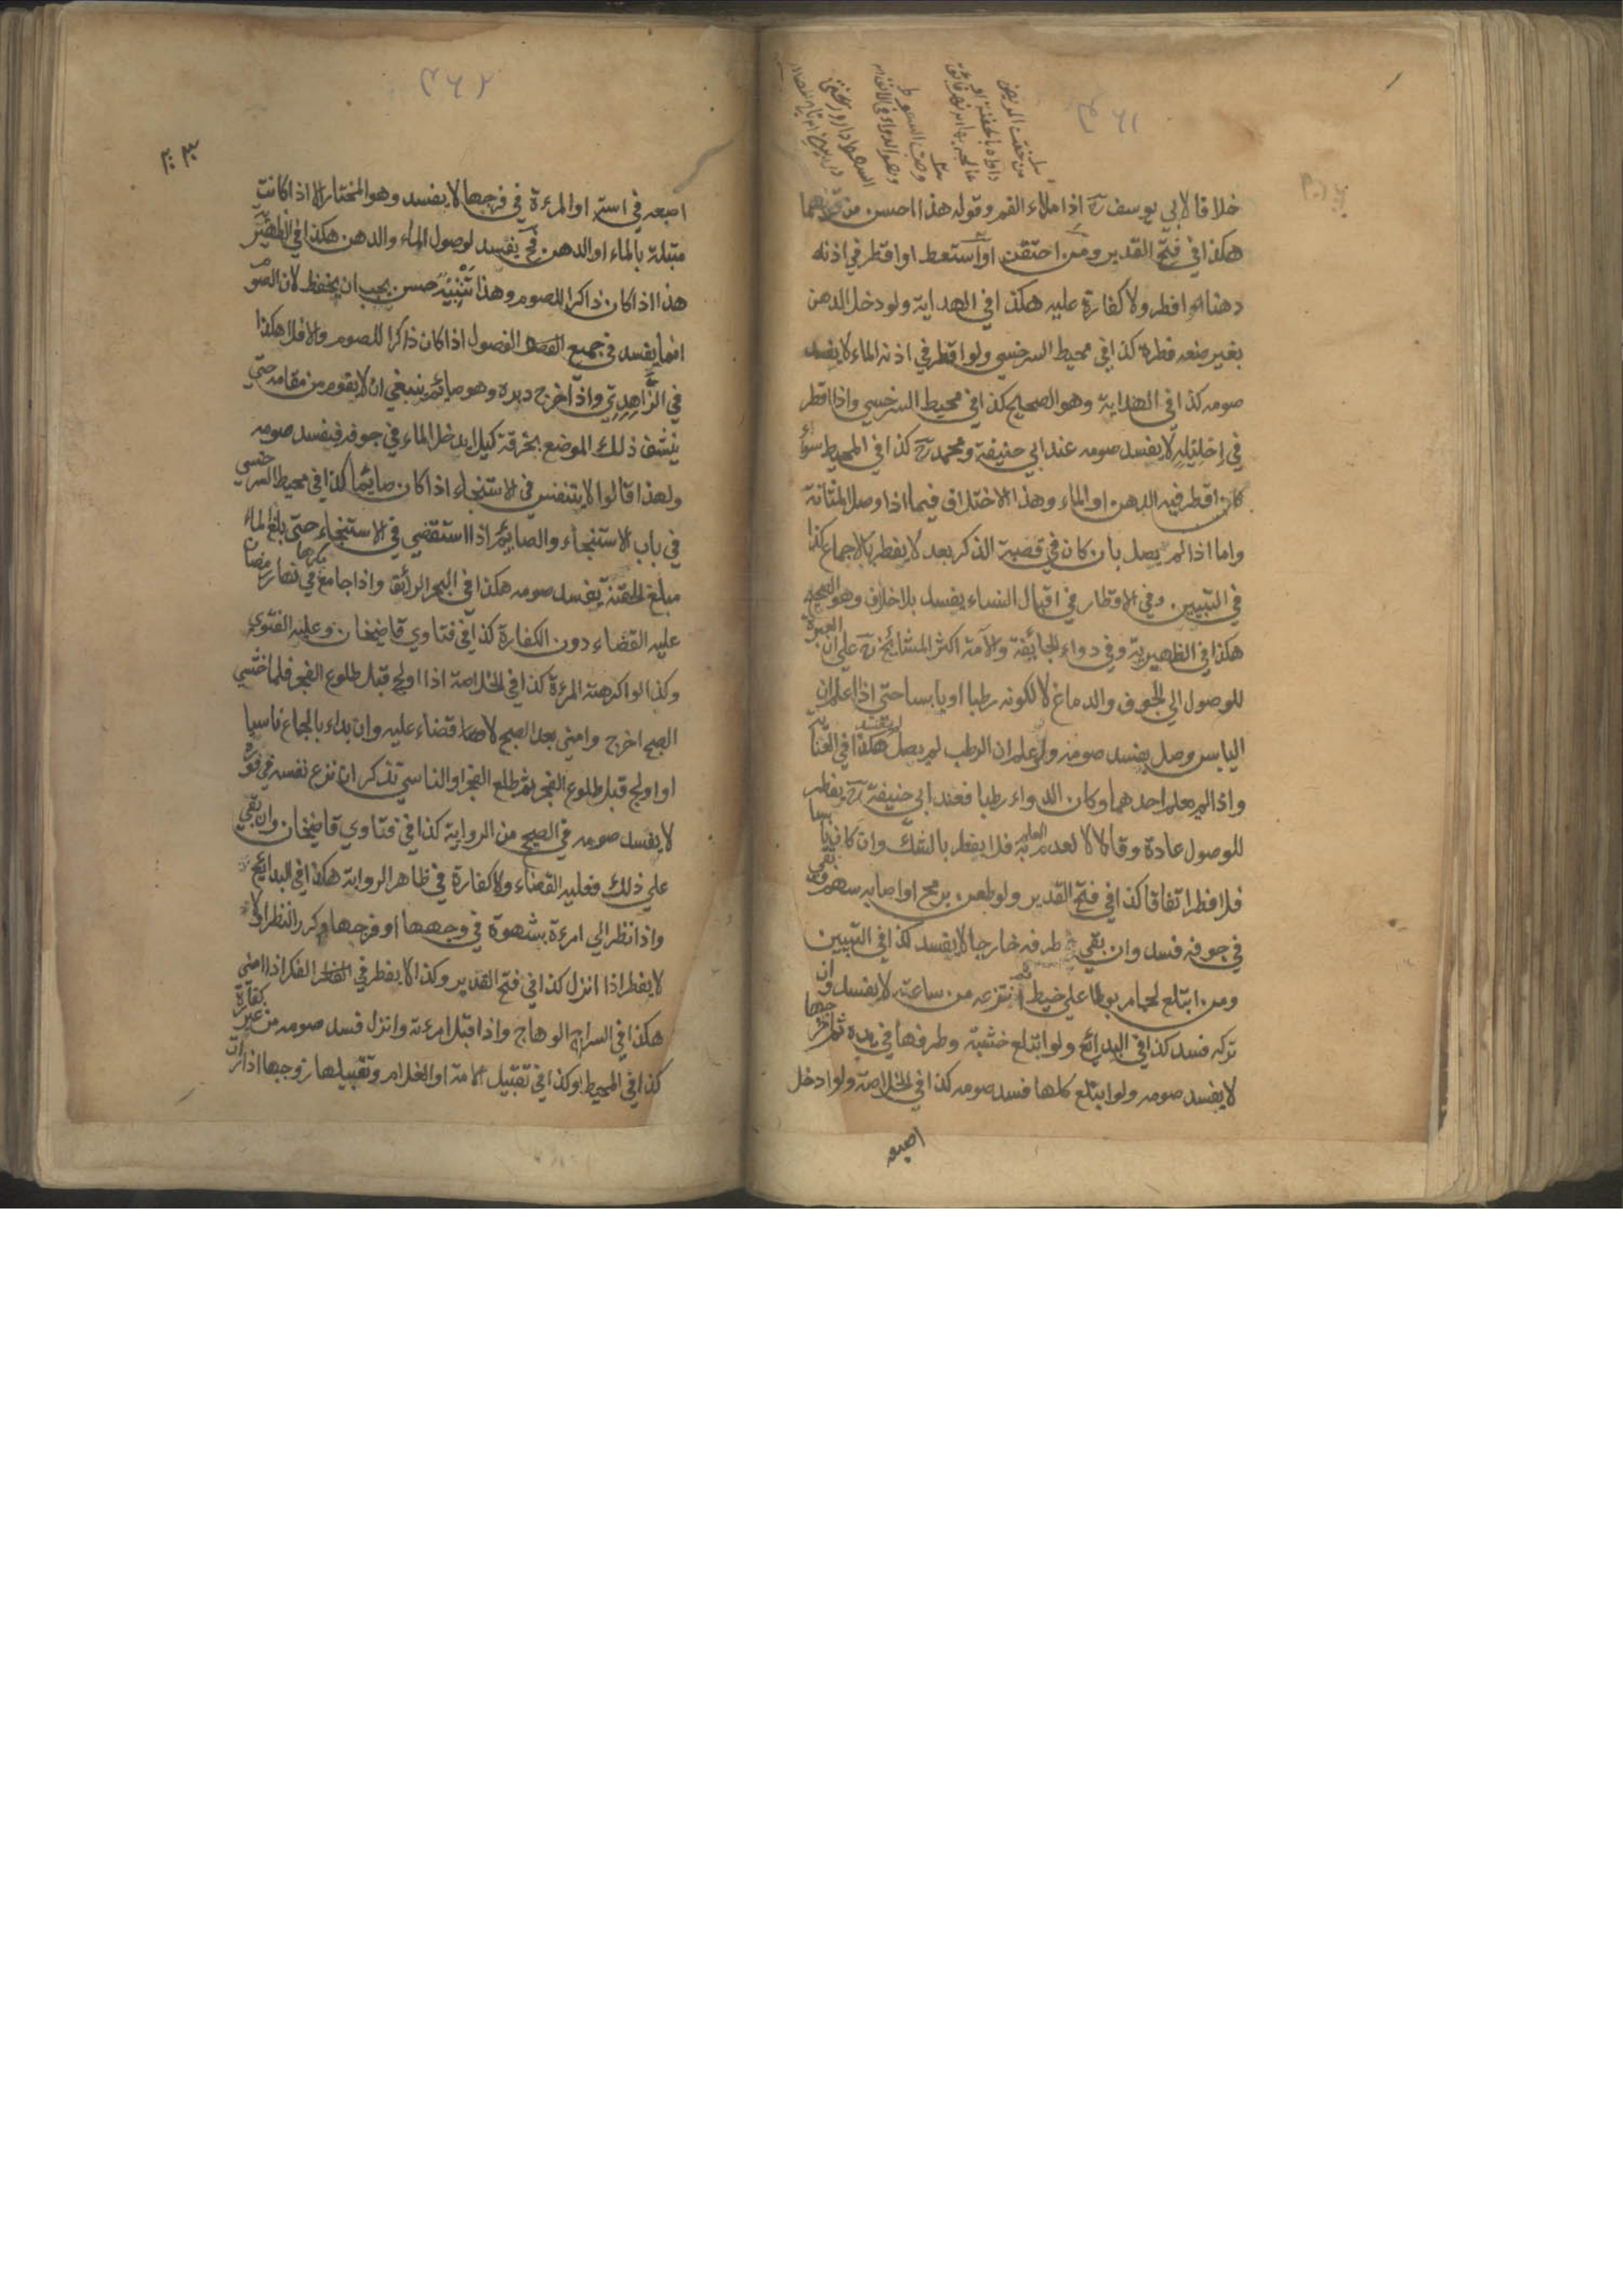 ٤٦١
خلافا لابي يوسف رح اذا ملاء الفم وقوله هذا احسن من قولهما
هكذا في فتح القدير ومن احتقن او استعط او اقطر في اذنه
دهنا افطر ولا كفارة عليه هكذا في الهداية ولو دخل الدهن
بغير صنعه فطره كذا في محيط السرخسي ولو اقطر في اذنه الماء لا يفسد
صومه كذا في الهداية وهو الصحيح كذا في محيط السرخسي واذا اقطر
في احليله لا يفسد صومه عند ابي حنيفة ومحمد رح كذا في المحيط سواء
كان اقطر فيه الدهن او الماء وهذا الاختلاف فيما اذا وصل المثانة
واما اذا لم يصل بان كان في قصبة الذكر بعد لا يفطر بالاجماع كذا
في التبيين وفي الاقطار في اقبال النساء يفسد بلا خلاف وهو الصحيح
هكذا في الظهيرية وفي دواء الجائفة والآمة اكثر المشائخ رح على ان العبرة
للوصول الي الجوف والدماغ لا لكونه رطبا او يابسا حتي اذا علم ان
اليابس وصل يفسد صومه ولو علم ان الرطب لم يصل لم يفسد هكذا في العناية
واذا لم يعلم احدهما وكان الدواء رطبا فعند ابي حنيفة رح يفطر
للوصول عادة وقالا لا لعدم العلم به فلا يفطر بالشك وان كان يابسا
فلا فطر اتفاقا كذا في فتح القدير ولو طعن برمح او اصابه سهم وبقي
في جوفه فسد وان بقي طرفه خارجا لا يفسد كذا في التبيين
ومن ابتلع لحما مربوطا علي خيط ثم انتزعه من ساعته لا يفسد وان
تركه فسد كذا في البدائع ولو ابتلع خشبة وطرفها في يده ثم اخرجها
لا يفسد صومه ولو ابتلع كلها فسد صومه كذا في الخلاصة ولو ادخل
اصبعه
٤٦٢
اصبعه في استه او المرءة في فرجها لا يفسد وهو المختار الا اذا كانت
مبتلة بالماء او الدهن فح يفسد لوصول الماء والدهن هكذا في الظهيرية
هذا اذا كان ذاكرا للصوم وهذا تنبيه حسن يجب ان يحفظ لان الصوم
انما يفسد في جميع الفصول اذا كان ذاكرا للصوم والا فلا هكذا
في الزاهدي واذا خرج دبره وهو صائم ينبغي ان لا يقوم من مقامه حتي
ينشف ذلك الموضع بخرقة كيلا يدخل الماء في جوفه فيفسد صومه
ولهذا قالوا لا يتنفس في الاستنجاء اذا كان صائما كذا في محيط السرخسي
في باب الاستنجاء والصائم اذا استقضي في الاستنجاء حتي بلغ الماء
مبلغ الحقنة يفسد صومه هكذا في البحر الرائق واذا جامع مكرها في نهار رمضان
عليه القضاء دون الكفارة كذا في فتاوي قاضيخان وعليه الفتوي
وكذا لو اكرهته المرءة كذا في الخلاصة اذا اولج قبل طلوع الفجر فلما خشي
الصبح اخرج وامني بعد الصبح لا قضاء عليه وان بداء بالجماع ناسيا
او اولج قبل طلوع الفجر ثم طلع الفجر او الناسي تذكر ان نزع نفسه في فوره
لا يفسد صومه في الصحيح من الرواية كذا في فتاوي قاضيخان وان بقي
علي ذلك فعليه القضاء ولا كفارة في ظاهر الرواية هكذا في البدايع
واذا نظر الي امرءة بشهوة في وجهها او فرجها وكرر النظر اولا
لا يفطر اذا انزل كذا في فتح القدير وكذا لا يفطر في الفكر اذا امني
هكذا في السراج الوهاج واذا قبل امرءته وانزل فسد صومه من غير كفارة
كذا في المحيط وكذا في تقبيل الامة او الغلام وتقبيلها زوجها اذا رات